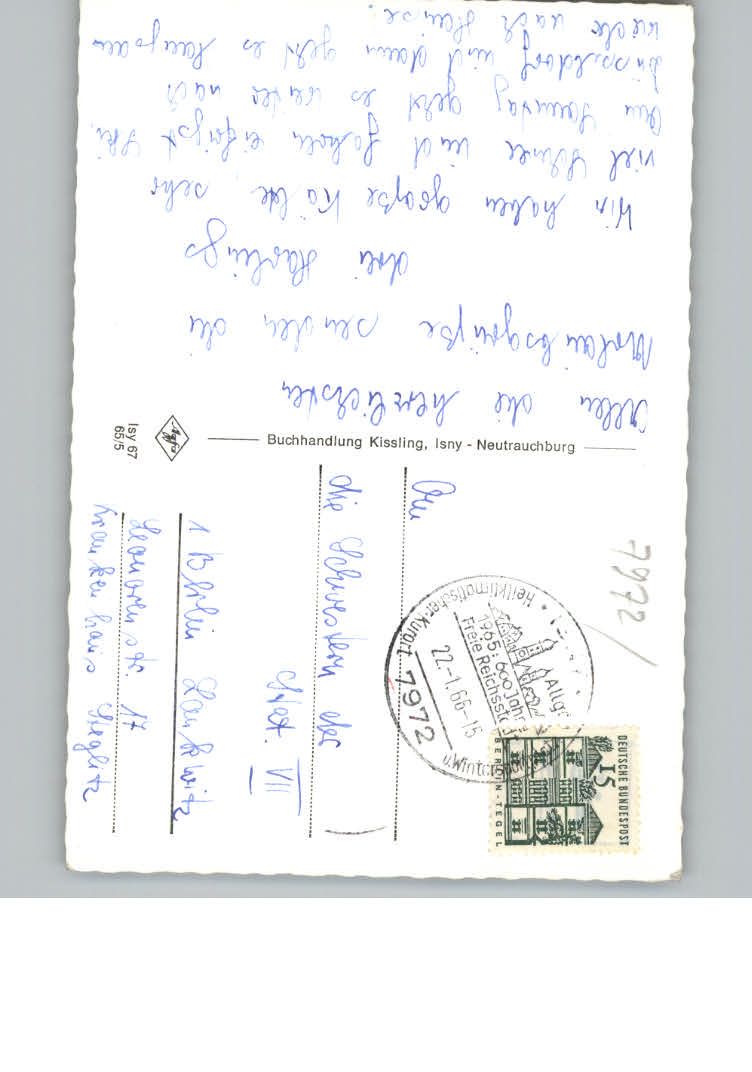 Allen die herzlichsten
Urlaubsgrüße senden die
drei Harlings
Wir haben große Kälte, sehr
viel Schnee und fahren eifrigst Ski.
Am Samstag geht es weiter nach
Düsseldorf und dann geht es langsam
wieder nach Hause.
Isy 67
65/5
Agfa
Buchhandlung Kissling, Isny - Neutrauchburg
An
die Schwestern der
Stat. VII
1 Berlin Lankwitz
Leonorenstr. 17
Krankenhaus Steglitz
7972
Heilklimatischer Kurort
7972
22.-1.66-15
1965: 600 Jahre
Freie Reichsstadt
Allgäu
u. Wintersport
DEUTSCHE BUNDESPOST
15
BERLIN-TEGEL